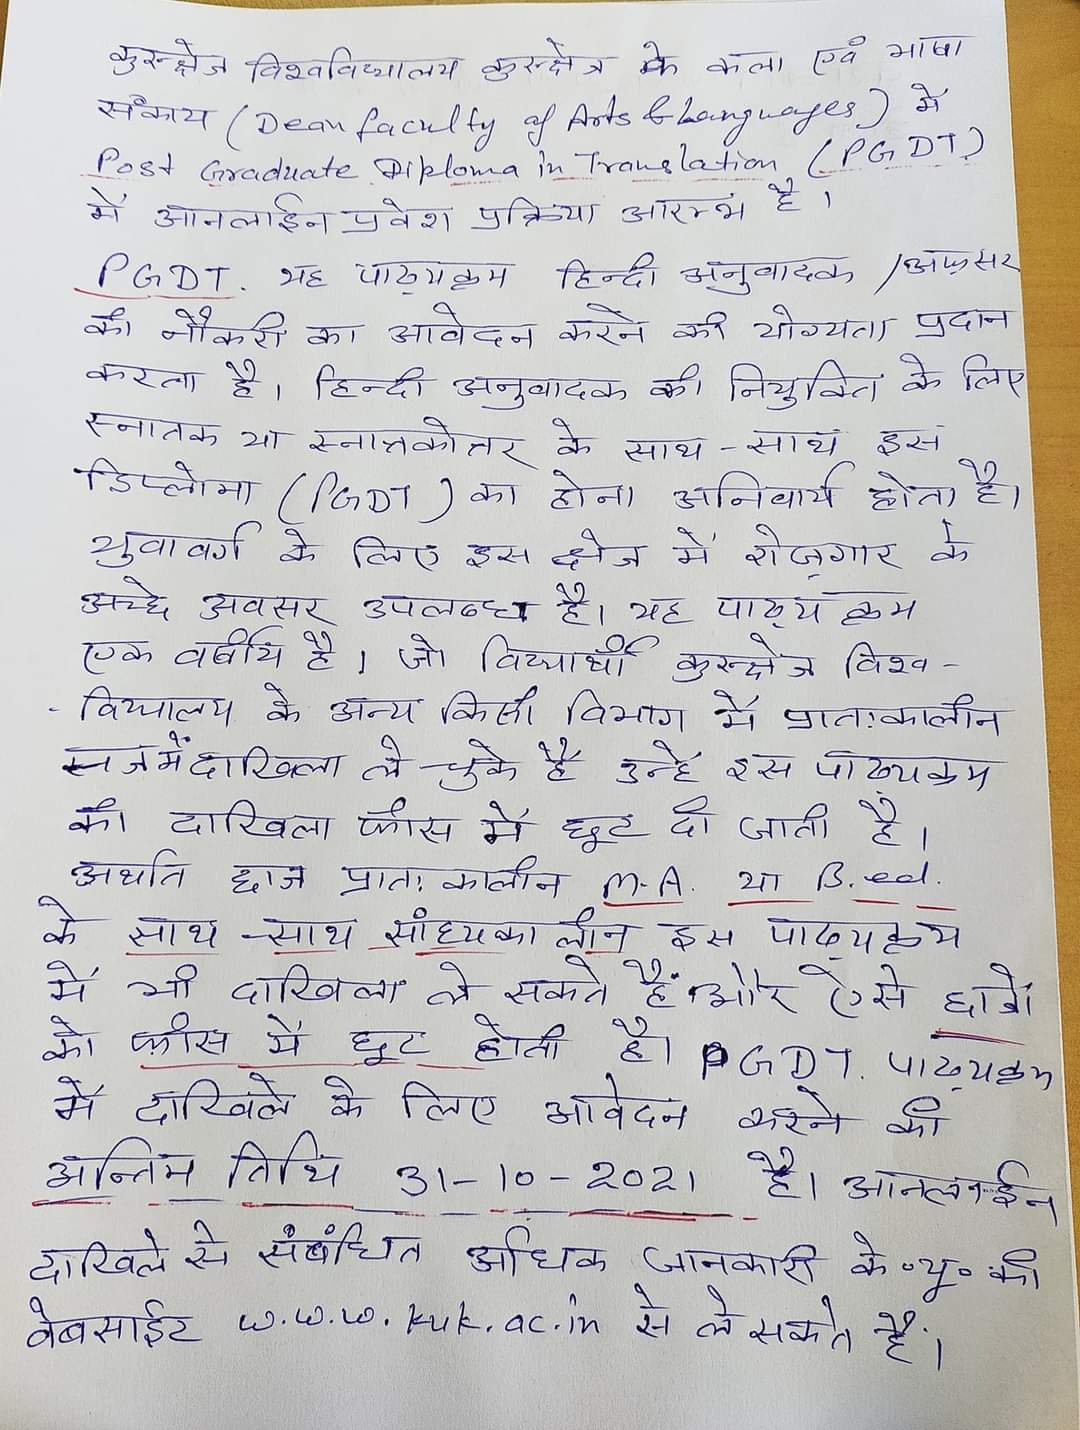 कुरुक्षेत्र विश्वविद्यालय कुरुक्षेत्र के कला एवं भाषा
संकाय (Dean faculty of Arts & Languages) में
Post Graduate Diploma in Translation (PGDT)
में आनलाईन प्रवेश प्रक्रिया आरम्भ है।
PGDT. यह पाठ्यक्रम हिन्दी अनुवादक /अफ़सर
की नौकरी का आवेदन करने की योग्यता प्रदान
करता है। हिन्दी अनुवादक की नियुक्ति के लिए
स्नातक या स्नात्तकोत्तर के साथ-साथ इस
डिप्लोमा (PGDT) का होना अनिवार्य होता है।
युवावर्ग के लिए इस क्षेत्र में रोज़गार के
अच्छे अवसर उपलब्ध है। यह पाठ्यक्रम
एक वर्षीय है। जो विद्यार्थी कुरुक्षेत्र विश्व-
-विद्यालय के अन्य किसी विभाग में प्रातःकालीन
सत्र में दाखिला ले चुके हैं उन्हें इस पाठ्यक्रम
की दाखिला फीस में छूट दी जाती है।
अर्थात छात्र प्रातःकालीन M.A. या B.ed.
के साथ-साथ सांध्यकालीन इस पाठ्यक्रम
में भी दाखिला ले सकते हैं और ऐसे छात्रों
को फ़ीस में छूट होती है। PGDT. पाठ्यक्रम
में दाखिले के लिए आवेदन करने की
अन्तिम तिथि 31-10-2021 है। आनलाईन
दाखिले से संबंधित अधिक जानकारी के॰यू॰ की
वेबसाईट w.w.w.kuk.ac.in से ले सकते हैं।